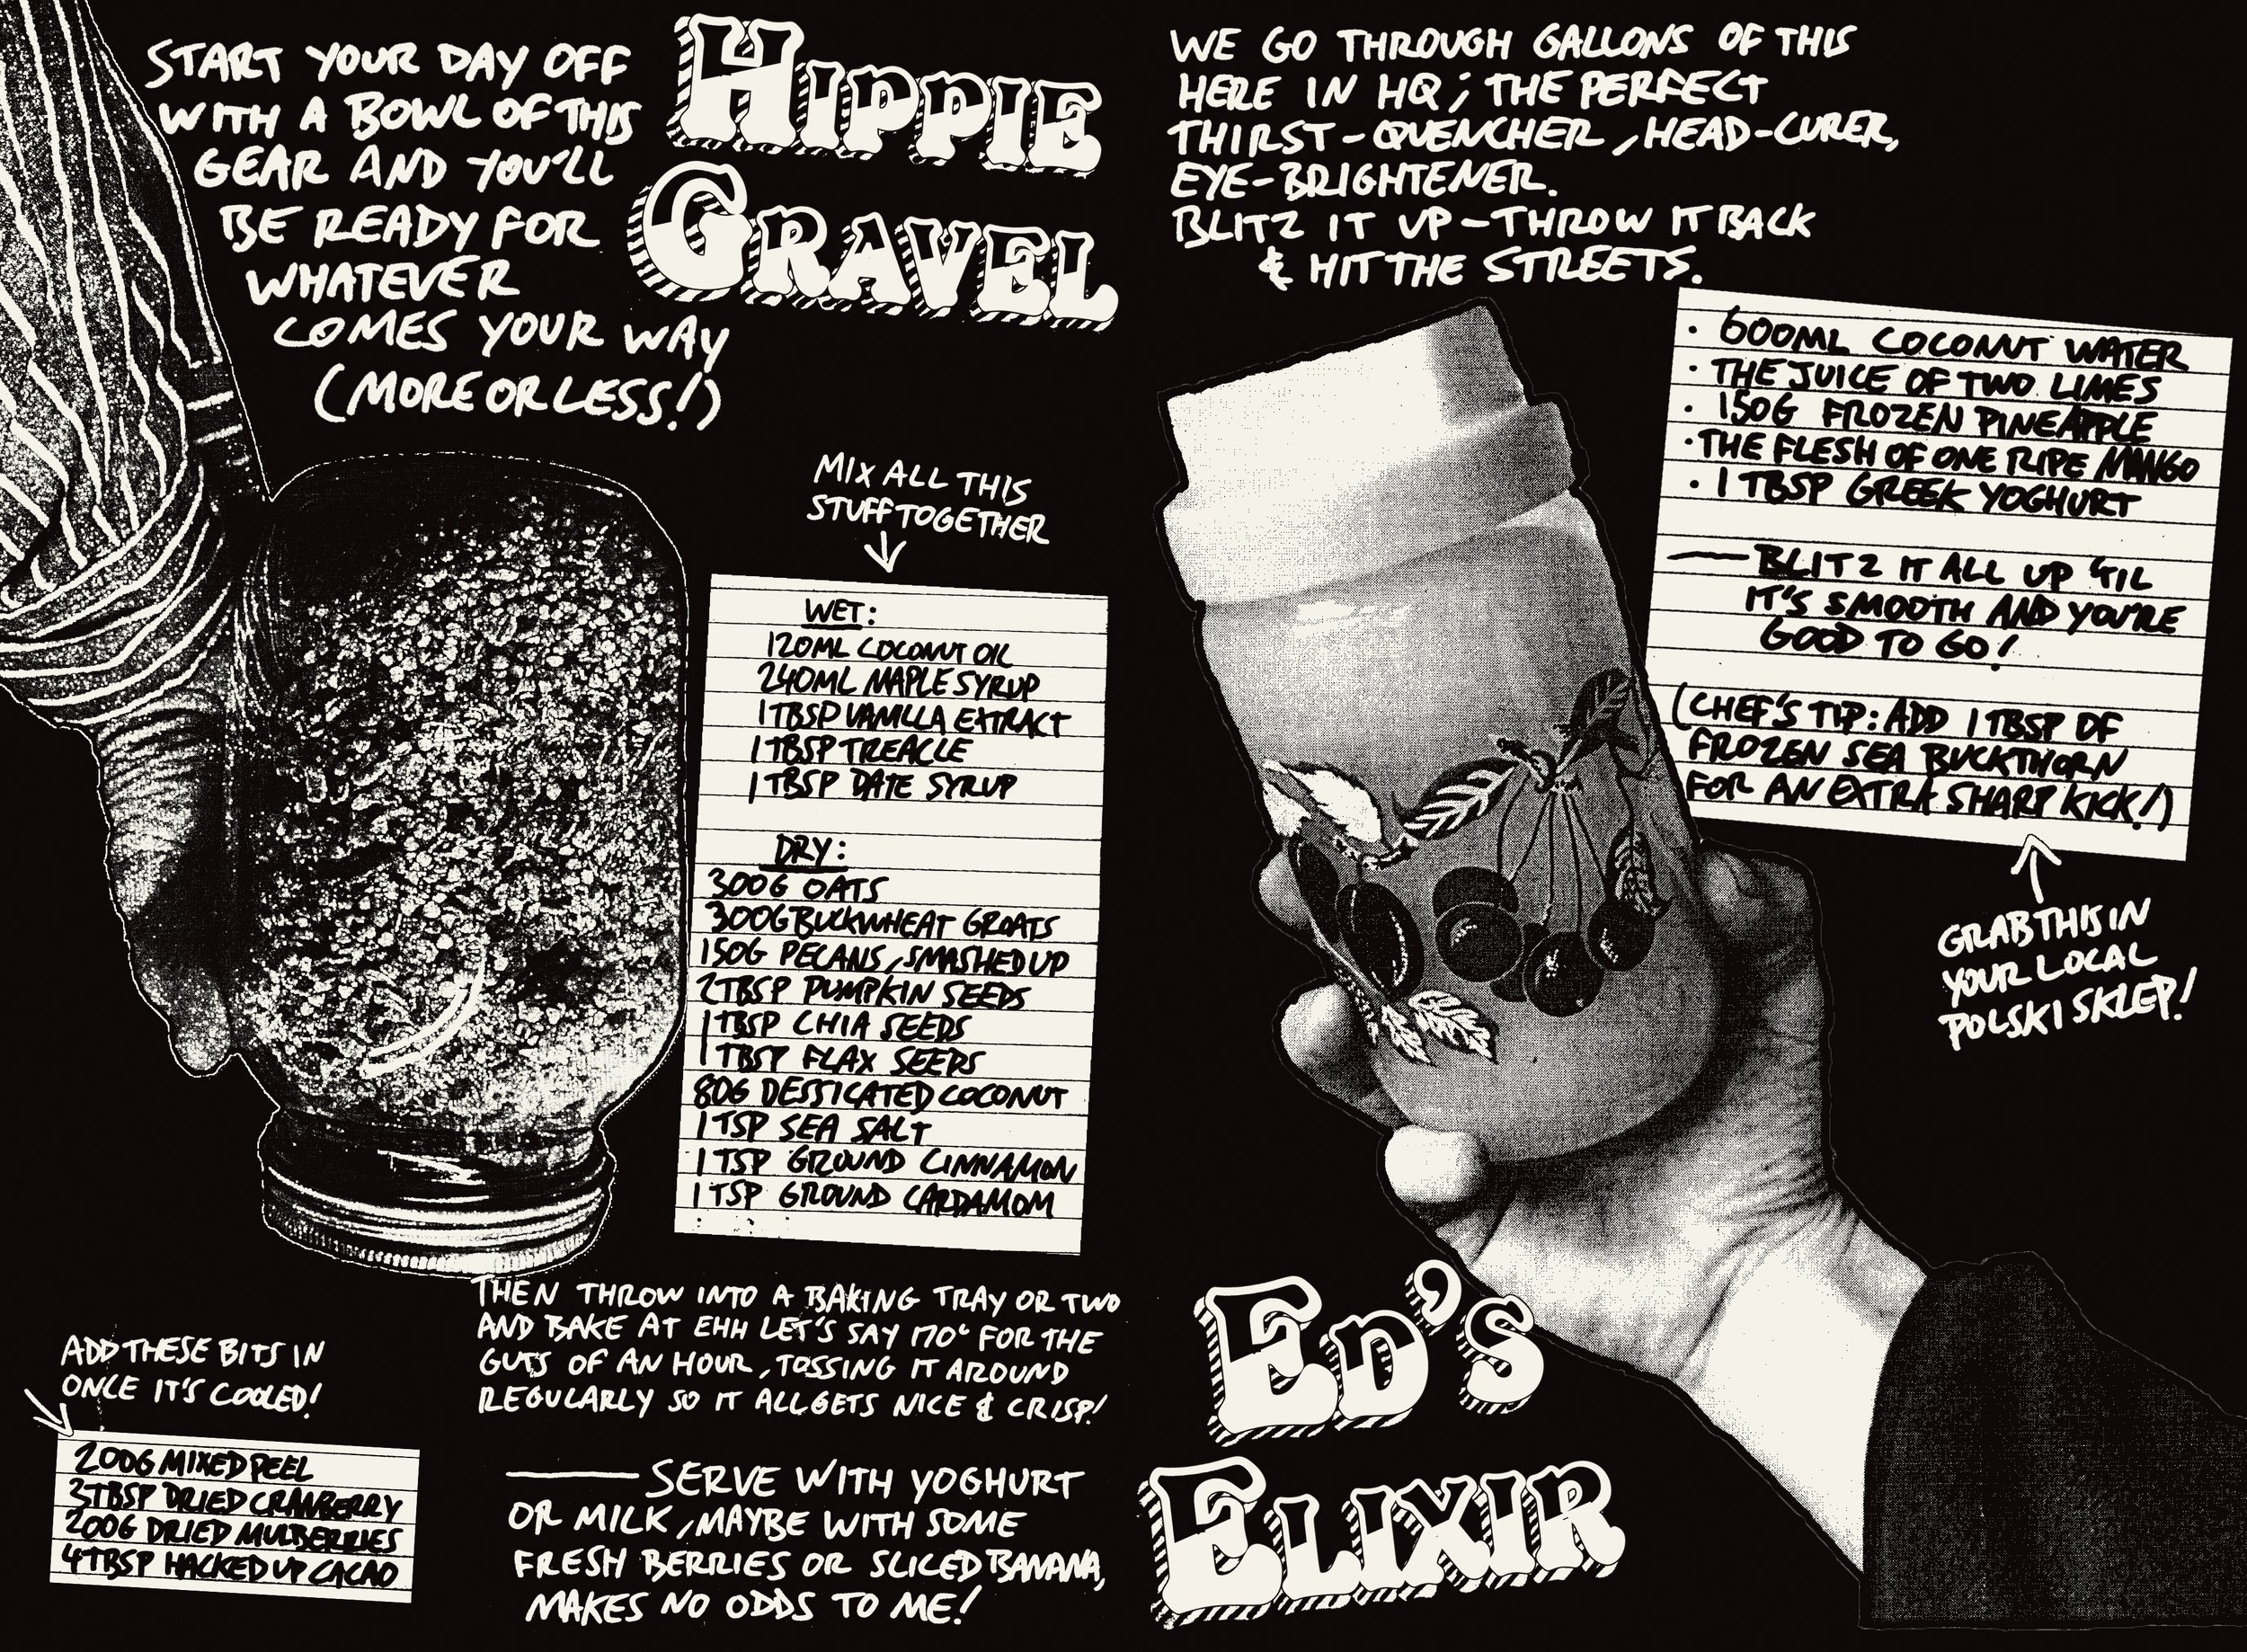 START YOUR DAY OFF
WITH A BOWL OF THIS
GEAR AND YOU'LL
BE READY FOR
WHATEVER
COMES YOUR WAY
(MORE OR LESS!)
HIPPIE
GRAVEL
MIX ALL THIS
STUFF TOGETHER
WET:
120ML COCONUT OIL
240ML MAPLE SYRUP
1 TBSP VANILLA EXTRACT
1 TBSP TREACLE
1 TBSP DATE SYRUP
DRY:
300G OATS
300G BUCKWHEAT GROATS
150G PECANS, SMASHED UP
2 TBSP PUMPKIN SEEDS
1 TBSP CHIA SEEDS
1 TBSP FLAX SEEDS
80G DESSICATED COCONUT
1 TSP SEA SALT
1 TSP GROUND CINNAMON
1 TSP GROUND CARDAMOM
THEN THROW INTO A BAKING TRAY OR TWO
AND BAKE AT EHH LET'S SAY 170° FOR THE
GUTS OF AN HOUR, TOSSING IT AROUND
REGULARLY SO IT ALL GETS NICE & CRISP!
ADD THESE BITS IN
ONCE IT'S COOLED!
200G MIXED PEEL
3 TBSP DRIED CRANBERRY
200G DRIED MULBERRIES
4 TBSP HACKED UP CACAO
— SERVE WITH YOGHURT
OR MILK, MAYBE WITH SOME
FRESH BERRIES OR SLICED BANANA,
MAKES NO ODDS TO ME!
WE GO THROUGH GALLONS OF THIS
HERE IN HQ; THE PERFECT
THIRST-QUENCHER, HEAD-CURER,
EYE-BRIGHTENER.
BLITZ IT UP - THROW IT BACK
& HIT THE STREETS.
· 600ML COCONUT WATER
· THE JUICE OF TWO LIMES
· 150G FROZEN PINEAPPLE
· THE FLESH OF ONE RIPE MANGO
· 1 TBSP GREEK YOGHURT
— BLITZ IT ALL UP 'TIL
IT'S SMOOTH AND YOU'RE
GOOD TO GO!
(CHEF'S TIP: ADD 1 TBSP OF
FROZEN SEA BUCKTHORN
FOR AN EXTRA SHARP KICK!)
GRAB THIS IN
YOUR LOCAL
POLSKI SKLEP!
ED'S
ELIXIR